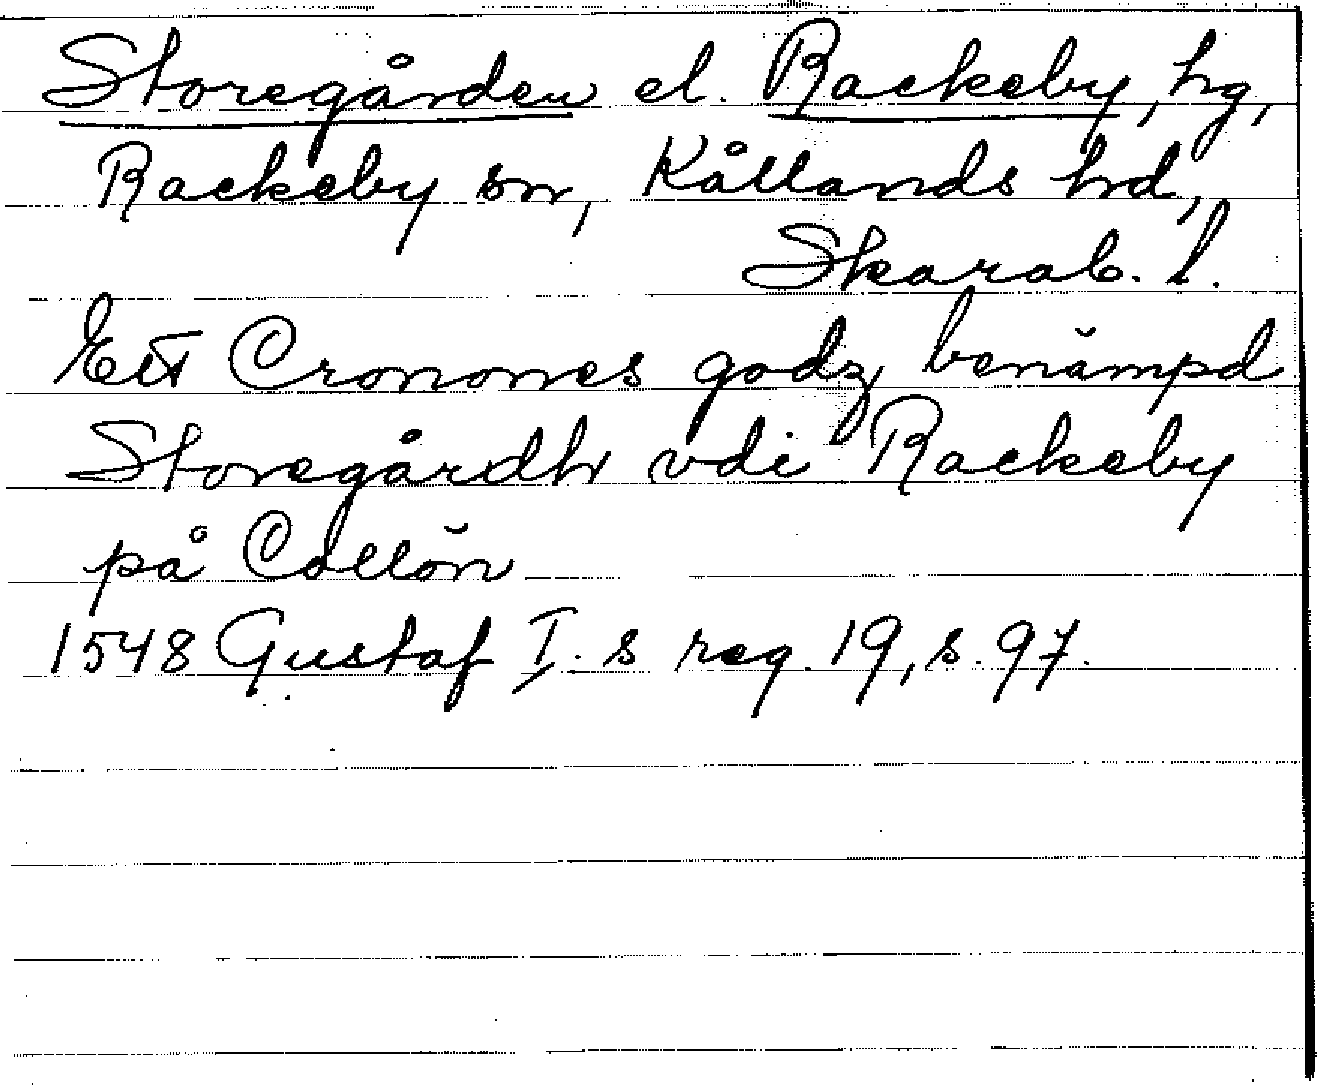 Storegården el. Rackeby, hg,
Rackeby sn, Kållands hrd,
Skarab. l.
Ett Cronones godz benämpd
Storegårdh vdi Rackeby
på Collön
1548 Gustaf I.s reg. 19, s. 97.